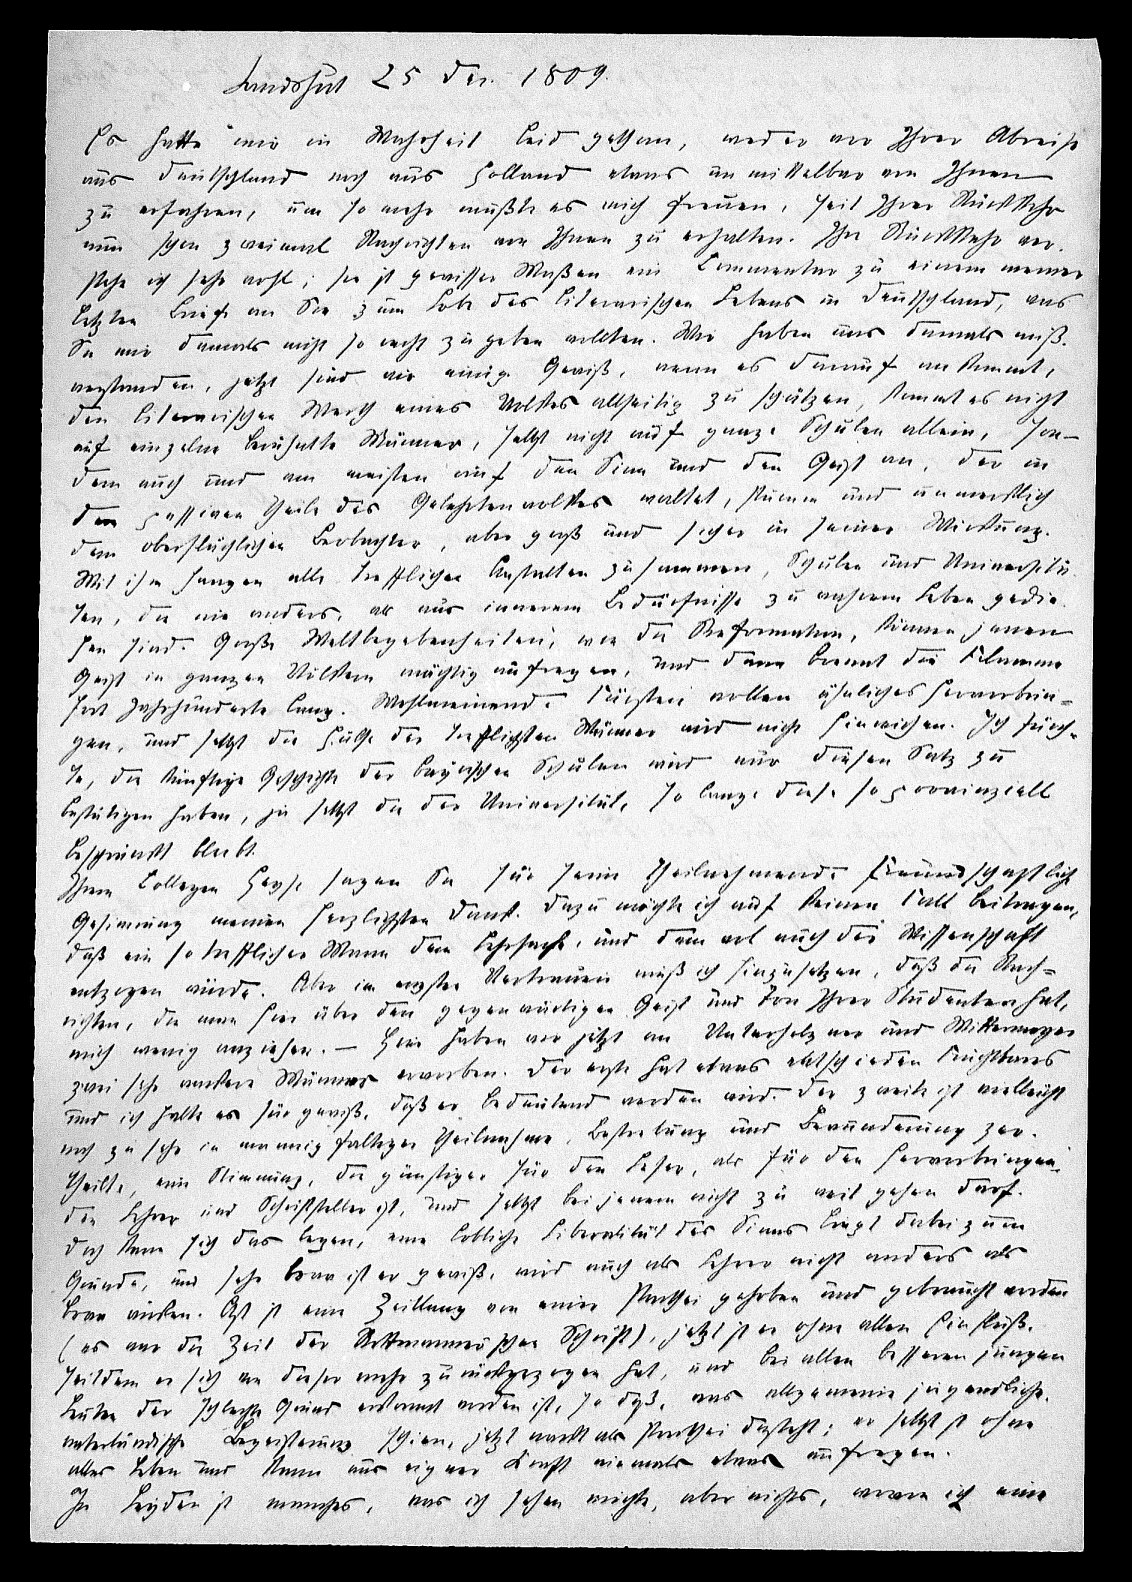 Landshut 25 Dec. 1809.
Es hatte mir in Wahrheit leid gethan, weder vor Ihrer Abreise
aus Deutschland noch aus Holland etwas unmittelbar von Ihnen
zu erfahren, um so mehr mußte es mich freuen, seit Ihrer Rückkehr
nun schon zweimal Nachrichten von Ihnen zu erhalten. Ihre Rückkehr ver-
stehe ich sehr wohl; sie ist gewisser Maßen ein Commentar zu einem meiner
letzten Briefe an Sie zum Lobe des literarischen Lebens in Deutschland, was
Sie mir damals nicht so recht zugeben wollten. Wir haben uns damals miß-
verstanden, jetzt sind wir einig. Gewiß, wenn es darauf ankommt,
den literarischen Werth eines Volkes allseitig zu schätzen, kommt es nicht
auf einzelne berühmte Männer, selbst nicht auf ganze Schulen allein, son-
dern auch und am meisten auf den Sinn und den Geist an, der in
dem passiven Theile des Gelehrtenvolkes waltet, stumm und unmerklich
dem oberflächlichen Beobachter, aber groß und sicher in seiner Wirkung.
Mit ihm hangen alle trefflichen Anstalten zusammen, Schulen und Universitä-
ten, die nie anders, als aus innerem Bedürfnisse zu wahrem Leben gedie-
hen sind. Große Weltbegebenheiten, wie die Reformation, können jenen
Geist in ganzen Völkern mächtig aufregen, und dann brennt die Flamme
fort Jahrhunderte lang. Wohlmeinende Fürsten wollen ähnliches hervorbrin-
gen, und selbst die Hülfe der trefflichsten Männer wird nicht hinreichen. Ich fürch-
te, die künftige Geschichte der bayrischen Schulen wird nur diesen Satz zu
bestätigen haben, ja selbst die der Universität, so lange diese so provinziell
beschränkt bleibt.
Ihrem Collegen Heyse sagen Sie für seine theilnehmende freundschaftliche
Gesinnung meinen herzlichsten Dank. Dazu möchte ich auf keinen Fall beitragen,
daß ein so trefflicher Mann dem Lehrfache, und dann wol auch der Wissenschaft
entzogen würde. Aber im engsten Vertrauen muß ich hinzusetzen, daß die Nach-
richten, die man hier über den gegenwärtigen Geist und Ton Ihrer Studenten hat,
mich wenig anziehen. — Hier haben wir jetzt an Unterholzner und Mittermayer
zwei sehr wackere Männer erworben. Der erste hat etwas entschieden Fruchtbares
und ich halte es für gewiß, daß er bedeutend werden wird. Der zweite ist vielleicht
noch zu sehr in mannigfaltiger Theilnahme, Bestrebung und Bewunderung zer-
theilt, eine Stimmung, die günstiger für den Leser, als für den hervorbringen-
den Lehrer und Schriftsteller ist, und selbst bei jenem nicht zu weit gehen darf.
Doch kann sich das legen, eine löbliche Liberalität des Sinnes liegt dabei zum
Grunde, und sehr brav ist er gewiß, wird auch als Lehrer nicht anders als
brav wirken. Ast ist eine Zeitlang von einer Parthei gehoben und gebraucht worden
(es war die Zeit der Rottmannerischen Schrift), jetzt ist er ohne allen Einfluß,
seitdem er sich von dieser mehr zurückgezogen hat, und bei allen besseren jungen
Leuten der schlechte Grund erkannt worden ist, so daß, was allgemeine jugendliche,
vaterländische Begeisterung schien, jetzt nackt als Parthei dasteht; er selbst ist ohne
alles Leben und kann aus eigner Kraft niemals etwas aufregen.
In Leyden ist manches, was ich sehen möchte, aber nichts, worum ich eine